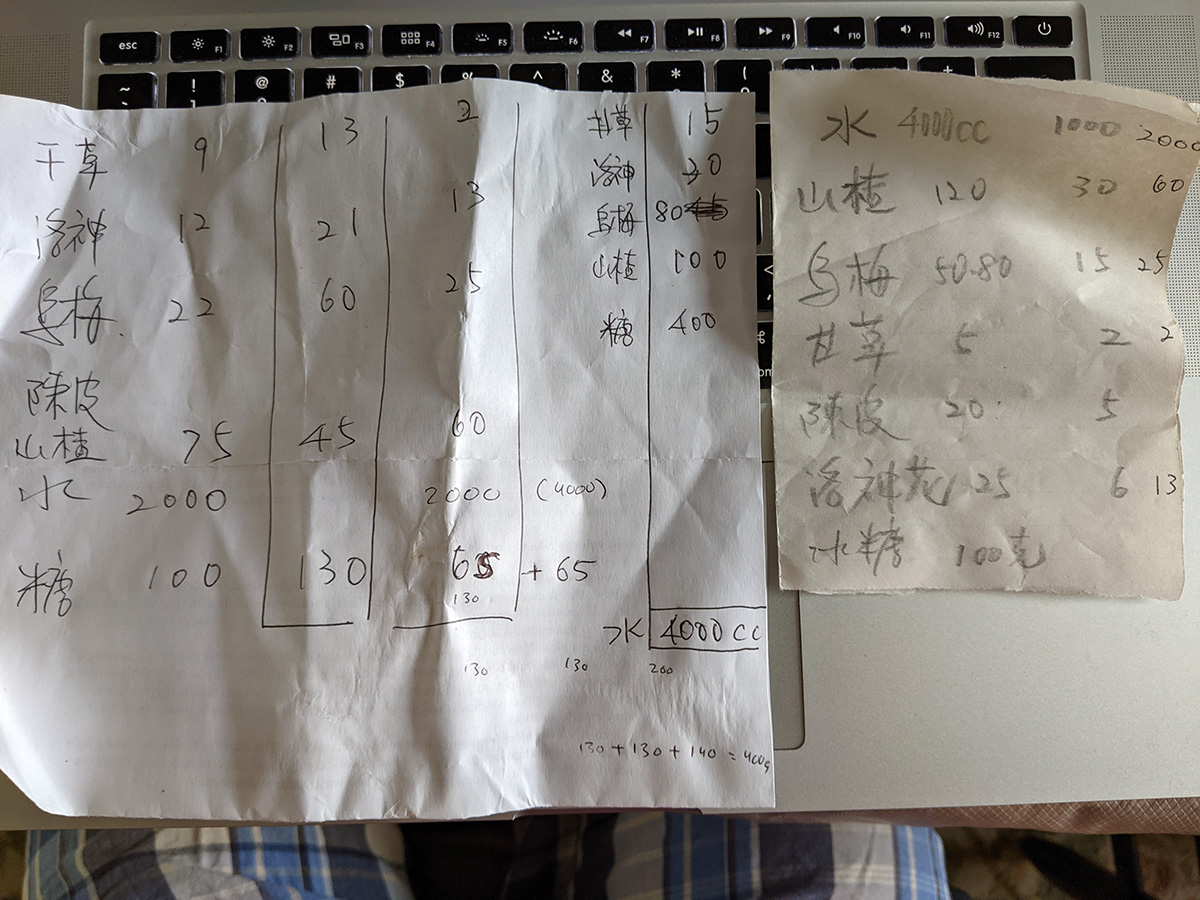 esc F1 F2 F3 F4 F5 F6 F7 F8 F9 F10 F11 F12
~ ! @ # $ % ^ & * ( +
干草 9 13 2
洛神 12 21 13
烏梅 22 60 25
陳皮
山楂 75 45 60
水 2000 2000 (4000)
糖 100 130 65 + 65
130
甘草 15
洛神 30
烏梅 80
山楂 100
糖 400
水 4000 CC
130 130 200
130 + 130 + 140 = 400g
水 4000cc 1000 2000
山楂 120 30 60
烏梅 50-80 15 25
甘草 5 2 2
陳皮 20 5
洛神花 25 6 13
冰糖 100克